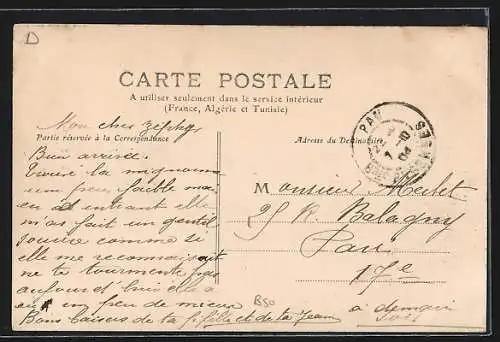 D
CARTE POSTALE
A utiliser seulement dans le service intérieur
(France, Algérie et Tunisie)
Mon cher zéphyr
Partie réservée à la Correspondance
Adresse du Destinataire
PAU
04
Bien arrivée.
Trouvé la mignonne
un peu faible mais
en entrant elle
m'as fait un gentil
sourire comme si
elle me reconnaissait
ne te tourmente pas
aujourd'hui elle a
un peu de mieux
Bons baisers de ta p. fille et de ta Jeanne
Monsieur
25 R. Balagny
17e
B50
à demain